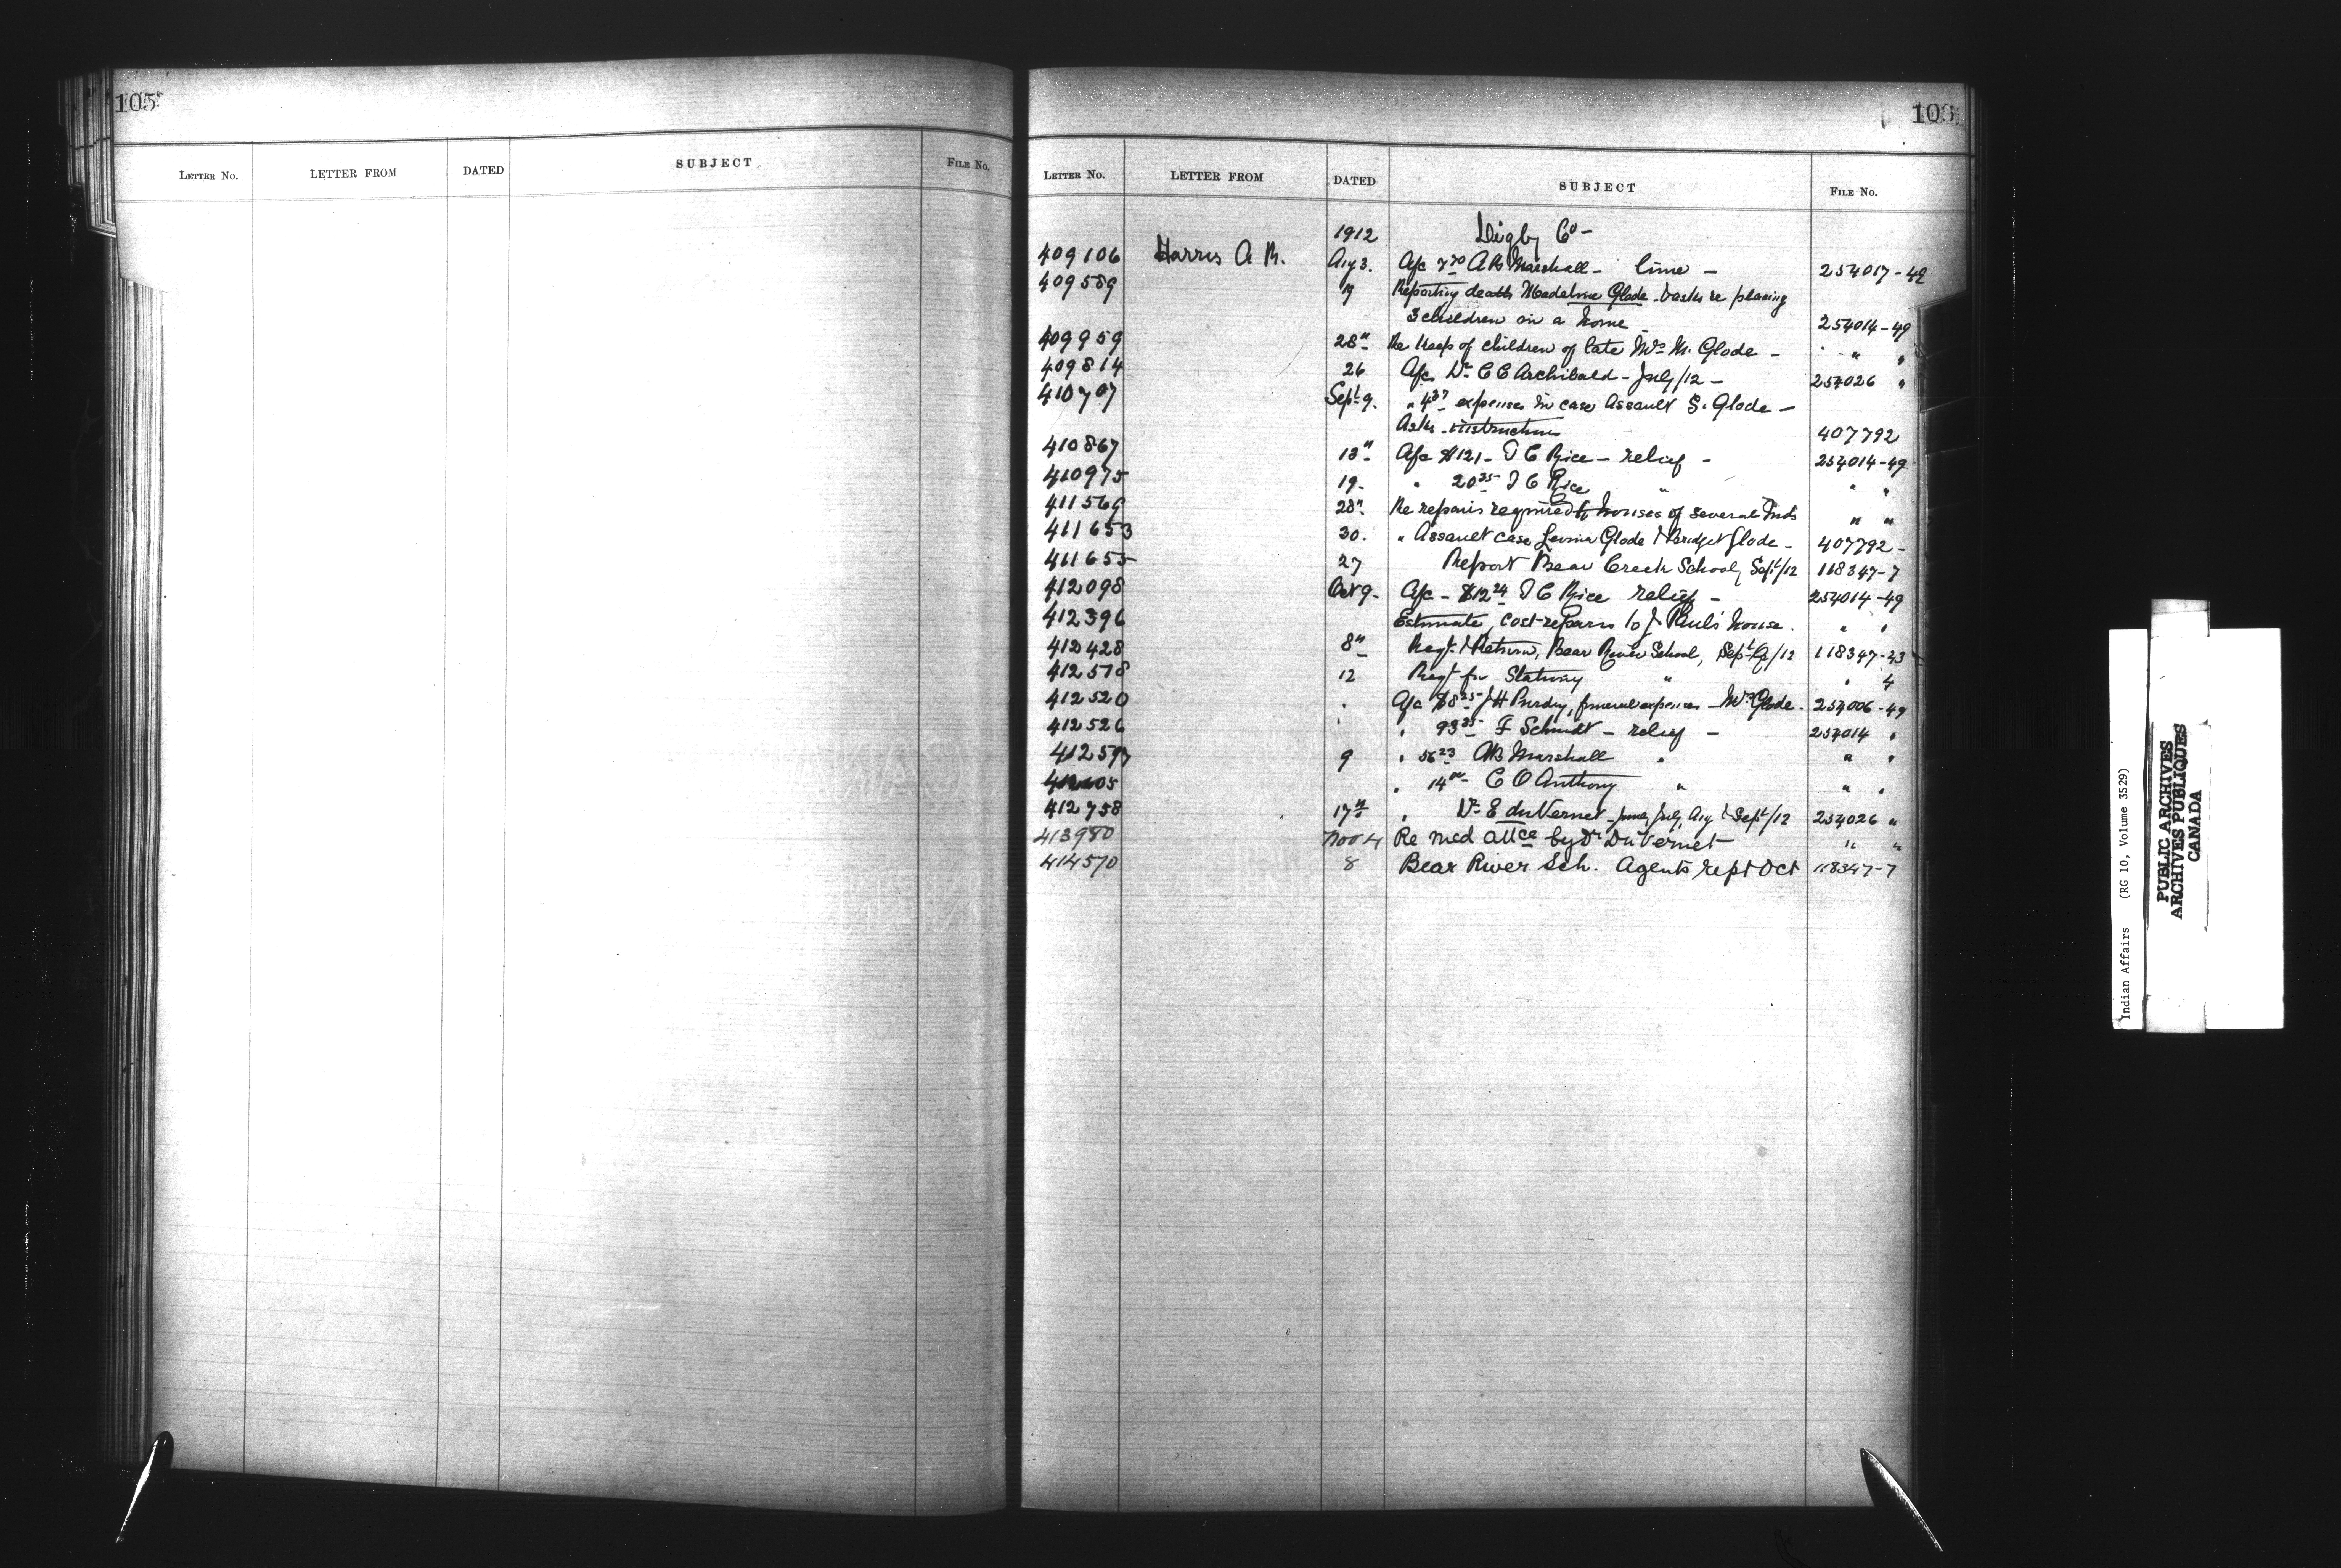 105
LETTER NO. LETTER FROM DATED SUBJECT FILE NO.
LETTER NO. LETTER FROM DATED SUBJECT FILE NO.
1912 Digby Co -
409106 Harris A R. Aug 3. A/c 7 70 A B Marshall - lime - 254017-49
409589 19 Reporting death Madeline Glode - & asks re placing
3 children in a home 254014-49
409959 28" Re keep of children of late Mrs M. Glode - " "
409814 26 A/c Dr C E Archibald - July/12 - 254026 "
410707 Sept 9. " 4 37 expenses in case Assault S. Glode -
Asks instructions 407792
410867 13" A/c $121 - T C Rice - relief - 254014-49
410975 19. " 20 35 T C Rice " " "
411569 28" Re repairs required to houses of several Inds " "
411653 30. " Assault case Glode & Bridget Glode - 407792-
411655 27 Report Bear Creek School, Sept/12 118347-7
412098 Oct 9. A/c - $12 24 T C Rice relief - 254014-49
412396 Estimate, cost repairs to J. Paul's house. " "
412428 8" Reqt & Return, Bear River School, Sept Q/12 118347-43
412578 12 Reqt for Stationery " " 4
412520 " A/c $8 25 J H Purdy, funeral expenses - Mrs Glode. 254006-49
412526 " " 93 35 F Schmidt - relief - 254014 "
412597 9 " 56 23 A B Marshall " " "
" 14 00 C O Anthony " " "
412758 17" " Dr E duVernet - June, July, Aug & Sept/12 254026 "
413980 Nov 4 Re med attce by Dr DuVernet - " "
414570 8 Bear River Sch. Agents rept Oct 118347-7
Indian Affairs (RG 10, Volume 3529)
PUBLIC ARCHIVES
ARCHIVES PUBLIQUES
CANADA